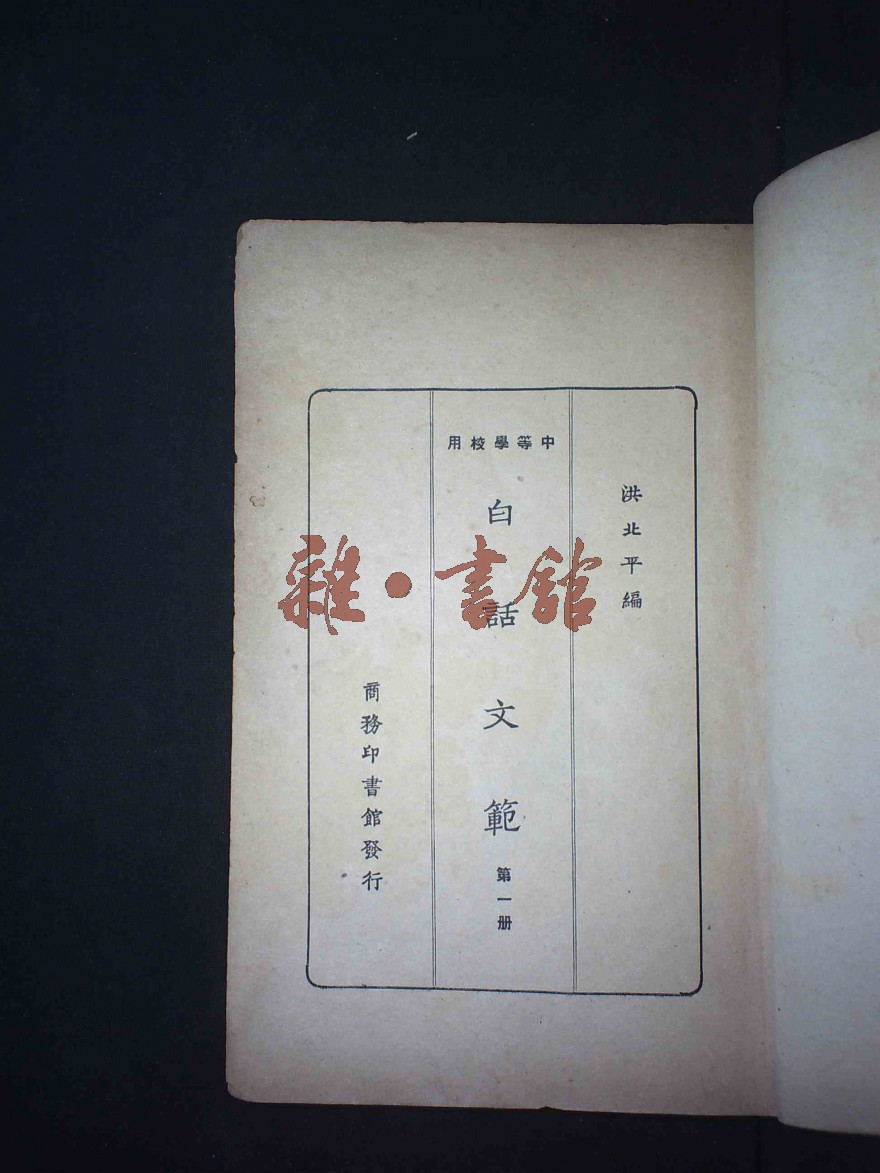 洪北平編
中等學校用
白話文範
第一册
商務印書館發行
雜·書館